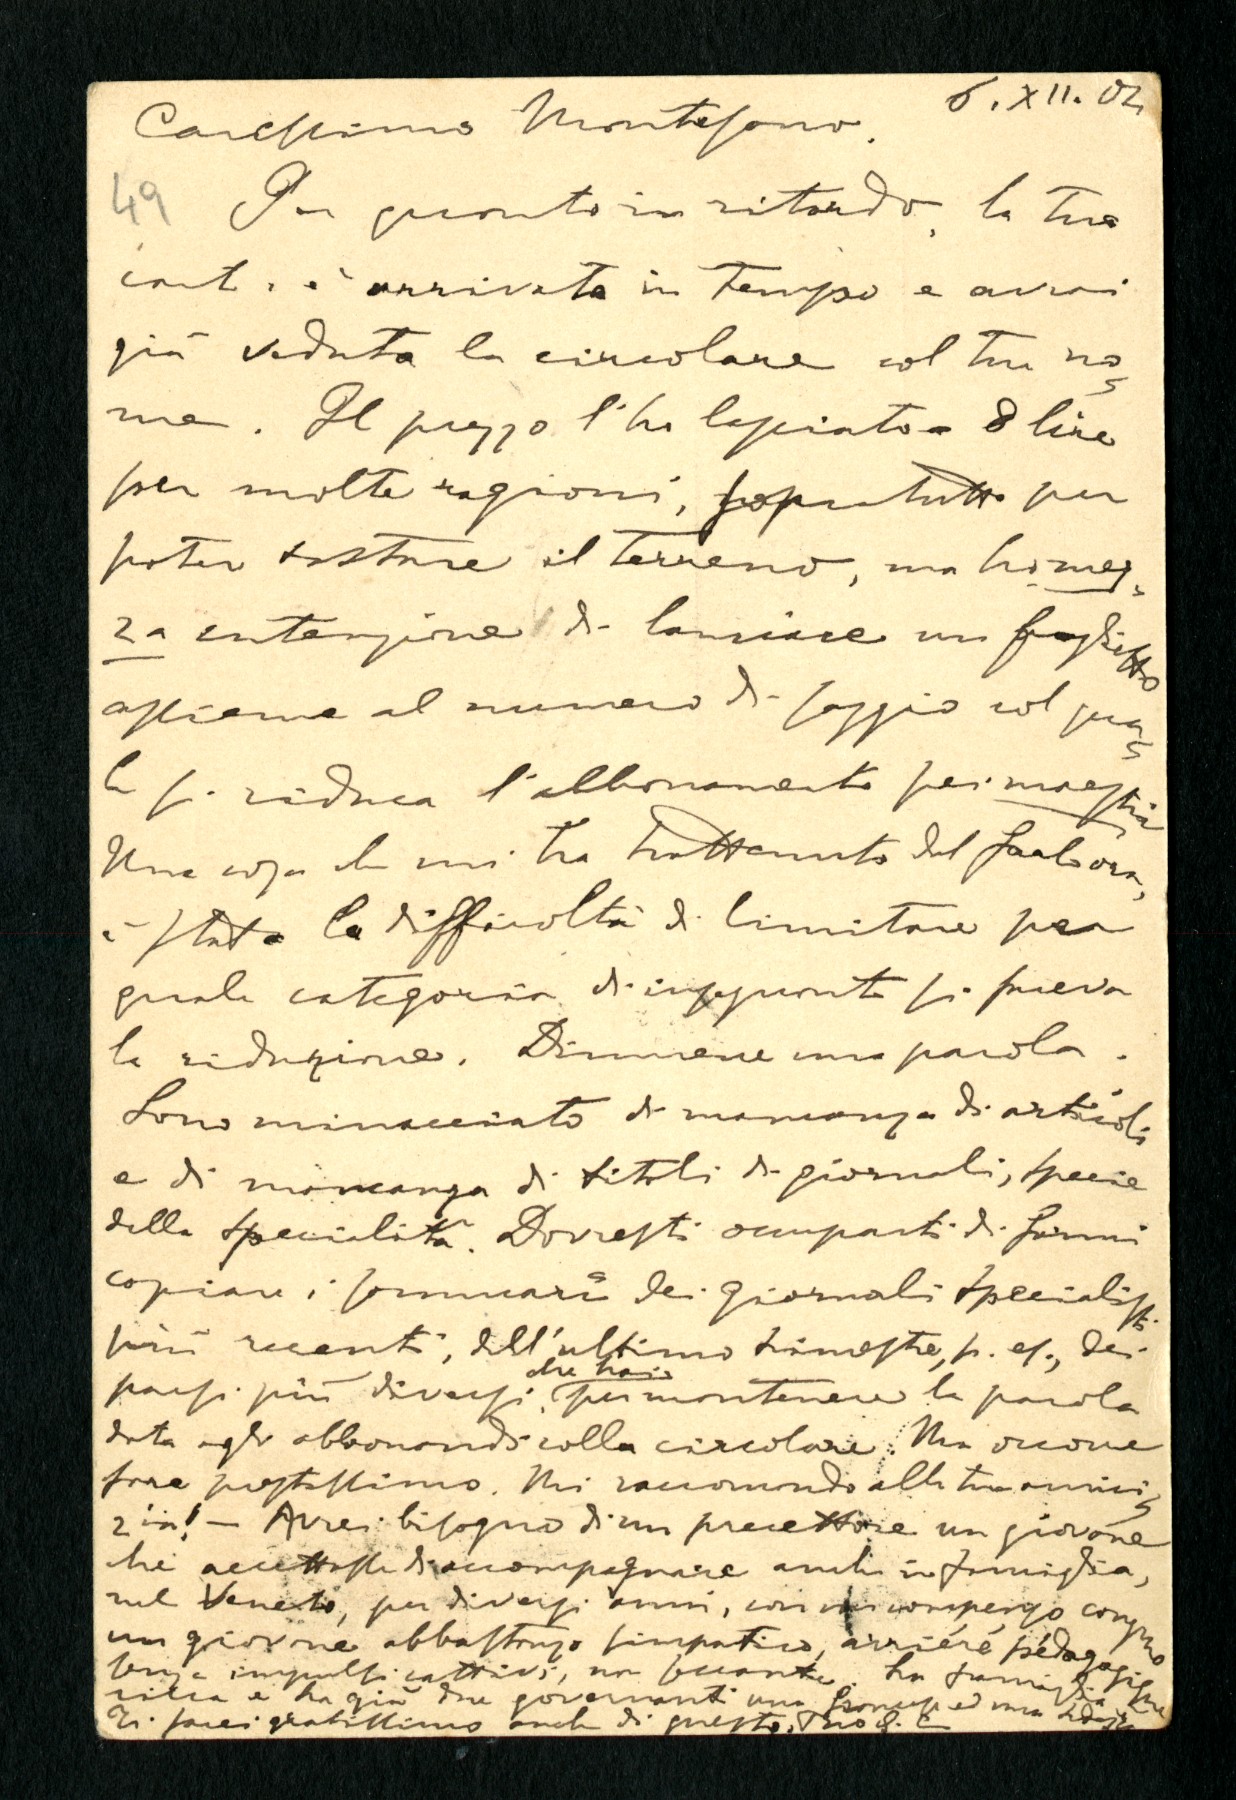 6. XII. 02
Carissimo Montesano.
49 Per quanto in ritardo, la tua
cart. è arrivata in tempo e avrai
già veduta la circolare col tuo no=
me. Il prezzo l'ho lasciato a 8 lire
per molte ragioni, sopratutto per
poter tastare il terreno, ma ho mez=
za intenzione di lanciare un foglietto
assieme al numero di saggio col qua=
le si riduca l'abbonamento pei maestri
Una cosa che mi ha trattenuto dal farlo ora,
è stata la difficoltà di limitare per
quale categoria di insegnanti si faceva
la riduzione. Dimmene una parola.
Sono minacciato di mancanza di articoli
e di mancanza di titoli di giornali, specie
della specialità. Dovresti occuparti di farmi
copiare i sommari dei giornali specialisti
più recenti, dell'ultimo trimestre, p. es., dei
che hai
paesi più diversi, per mantenere la parola
data agli abbonandi colla circolare. Ma occorre
fare prestissimo. Mi raccomando alla tua amici=
zia! — Avrei bisogno di un precettore un giovane
che accettasse di accompagnare anche in famiglia,
nel Veneto, per diversi anni, con un compenso congruo
un giovane abbastanza simpatico, arriéré pédagogique
senza impulsi cattivi, ha famiglia
ricca e ha già due governanti una francese ed una tedesca
Ti sarei gratissimo anche di questo. Tuo